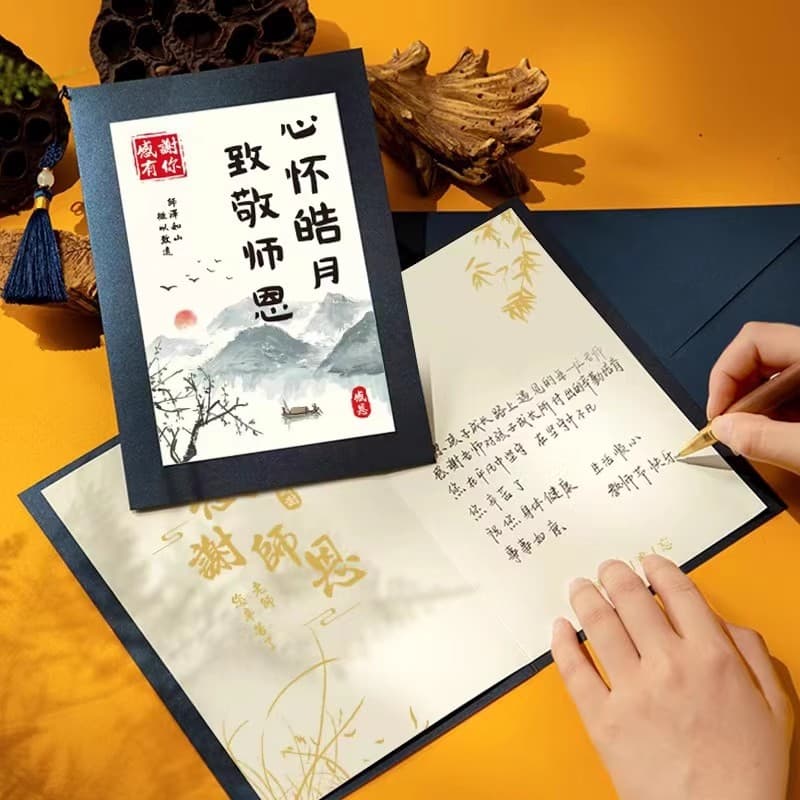 感謝
有你
心怀皓月
致敬师恩
師澤如山
微以致遠
感恩
謝師恩
老師
您辛苦了
孩子成长路上遇见的每一位老师
感谢老师对孩子成长所付出的辛勤培育
您在平凡中坚守 在坚守中不凡
您辛苦了
祝您身体健康 生活顺心
事事如意 教师节快乐